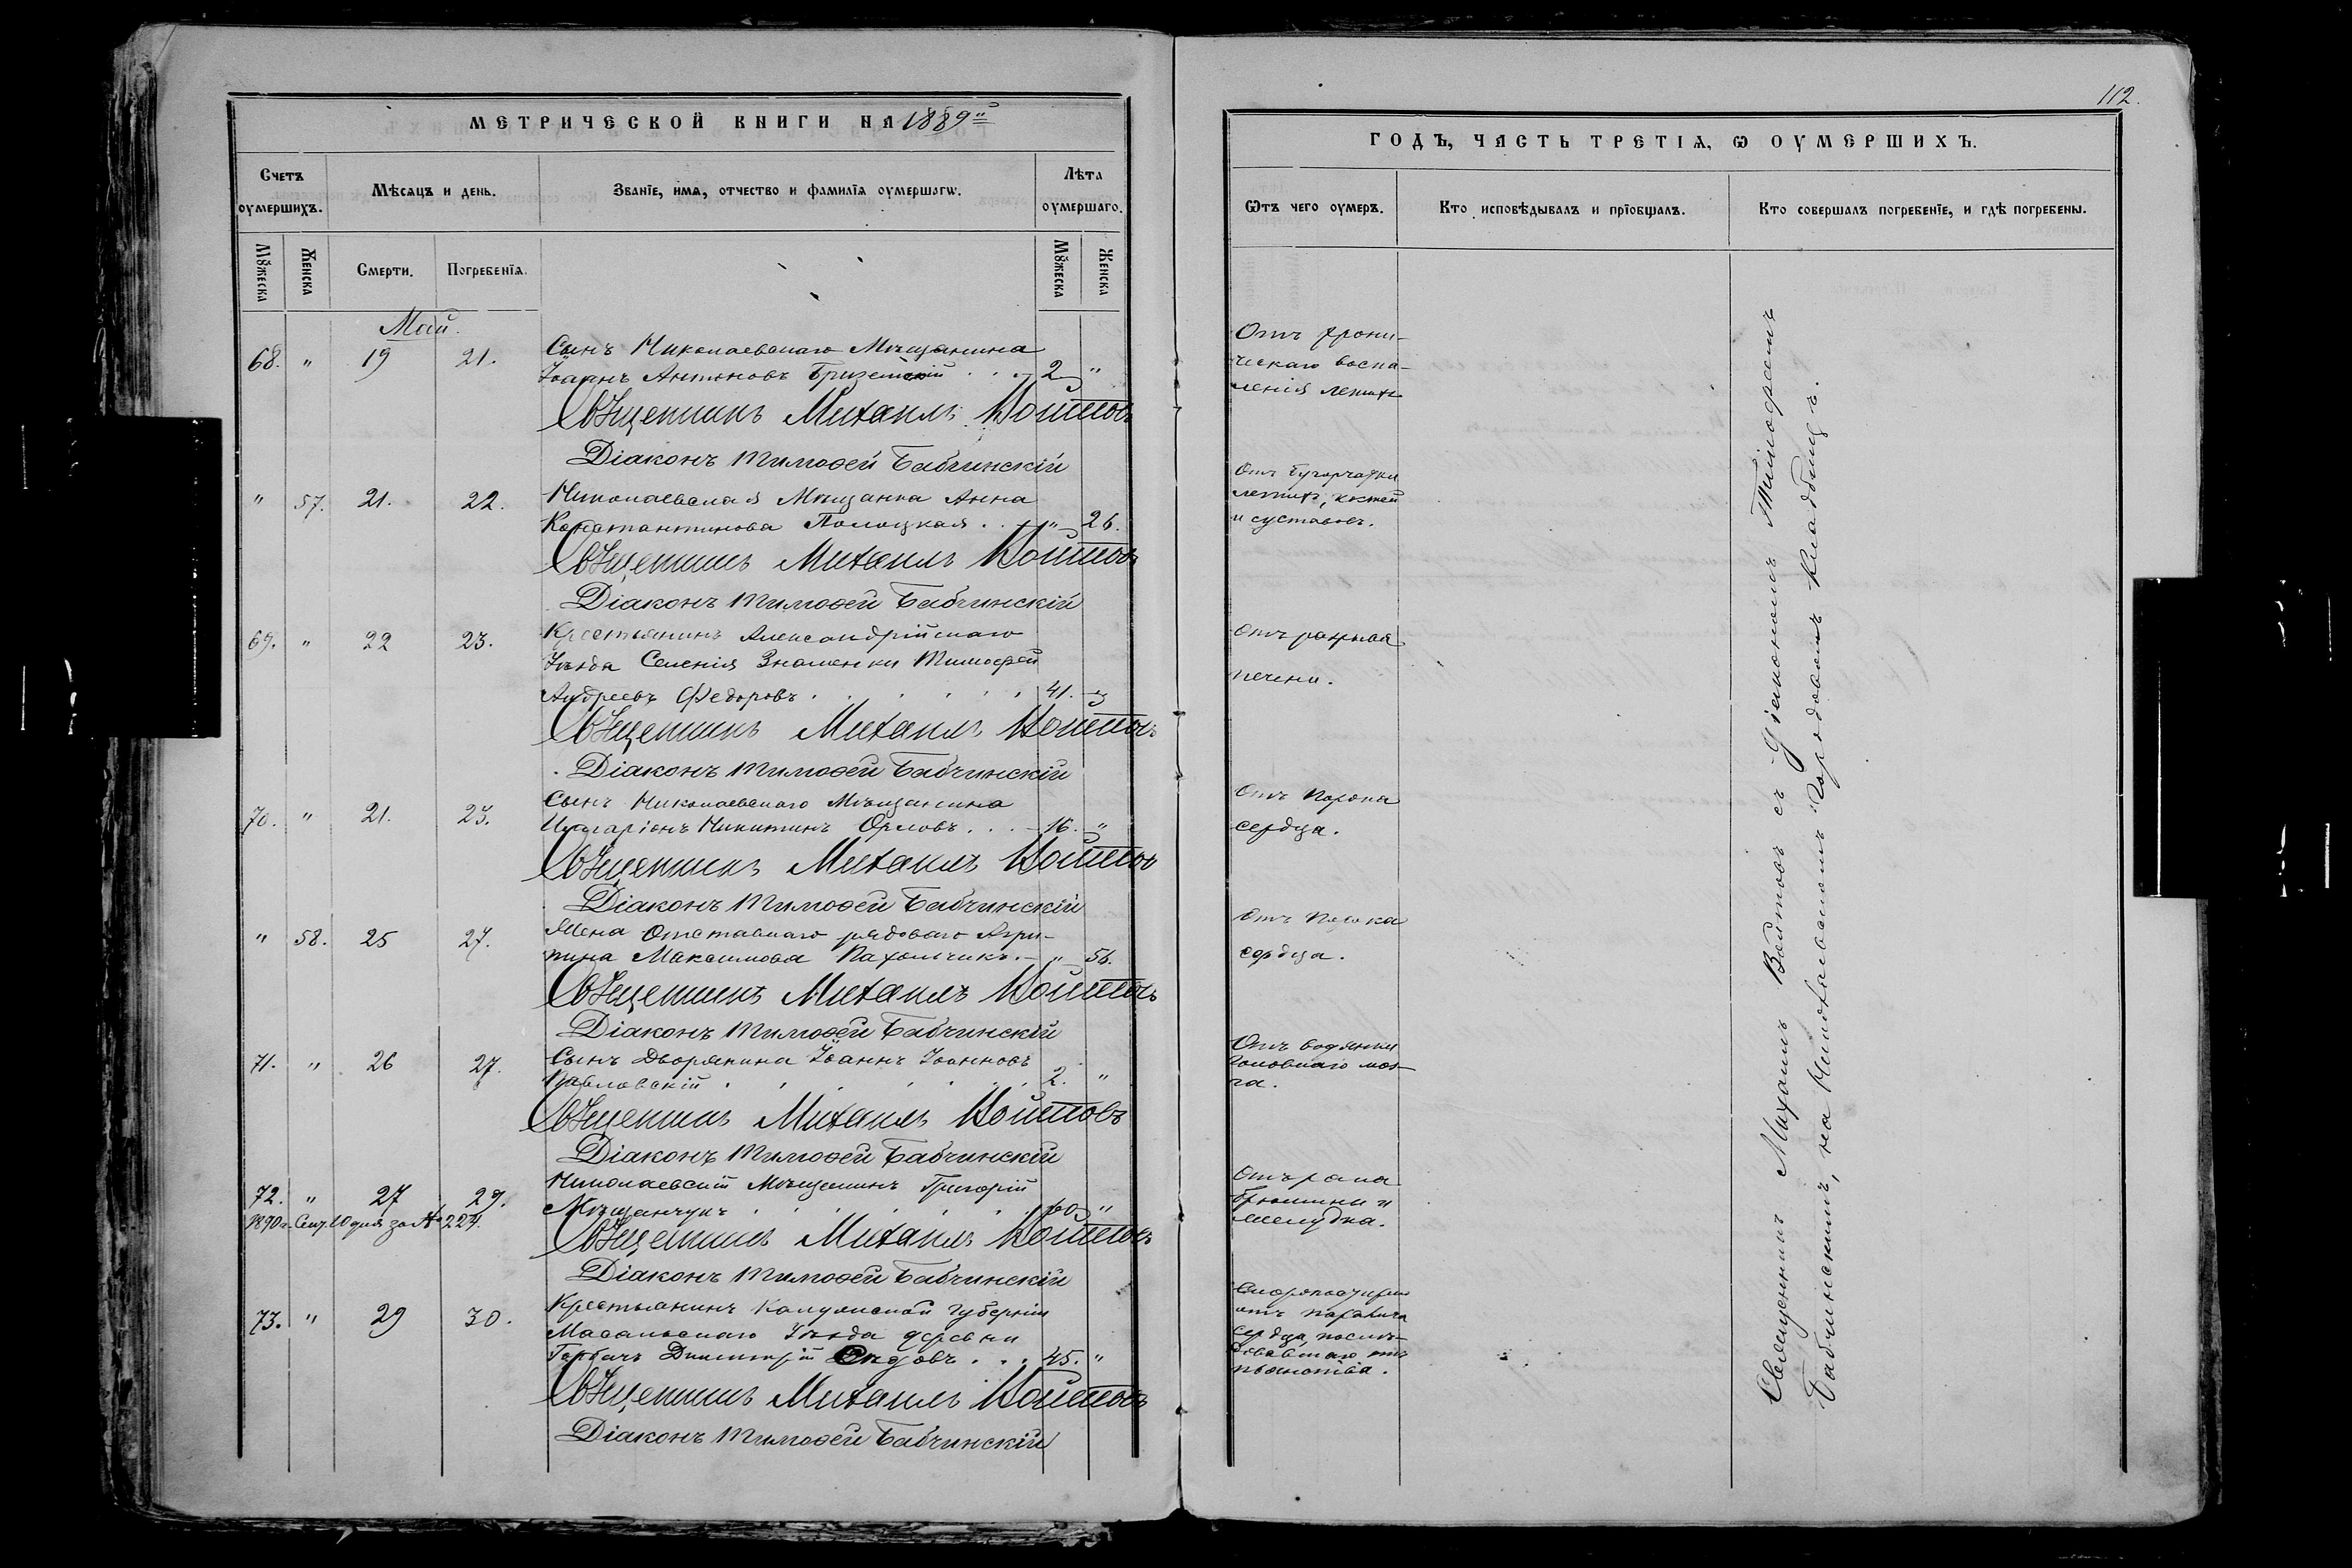 МЕТРИЧЕСКОЙ КНИГИ НА 1889й
Счетъ оумершихъ.
Мѣсяцъ и день.
Званїе, имя, отчество и фамилїя оумершагѡ.
Лѣта оумершаго.
Мꙋжеска
Женска
Смерти.
Погребенїя.
Мꙋжеска
Женска
Май.
68. " 19 21.
Сынъ Николаевскаго Мѣщанина
Іоаннъ Антоновъ 2 "
Священникъ Михаилъ Войтовъ
Діаконъ Тимоѳей Бабчинскій
" 57. 21. 22.
Николаевская Мѣщанка Анна
Константинова Полоцкая . . " 26.
Священникъ Михаилъ Войтовъ
Діаконъ Тимоѳей Бабчинскій
69. " 22 23.
Крестьянинъ Александрійскаго
Уѣзда Селенія Знаменки Тимоѳей
Андреевъ Федоровъ . . . . . . 41. "
Священникъ Михаилъ Войтовъ
Діаконъ Тимоѳей Бабчинскій
70. " 21. 23.
Сынъ Николаевскаго Мѣщанина
Илларіонъ Никитинъ Орловъ . . . 16. "
Священникъ Михаилъ Войтовъ
Діаконъ Тимоѳей Бабчинскій
" 58. 25 27.
Жена Отставнаго рядоваго Агри-
пина Максимова Пахомчикъ. " 56.
Священникъ Михаилъ Войтовъ
Діаконъ Тимоѳей Бабчинскій
71. " 26 27.
Сынъ Дворянина Іоаннъ Іоанновъ
Павловскій . . . . . . 2. "
Священникъ Михаилъ Войтовъ
Діаконъ Тимоѳей Бабчинскій
72. " 27 29.
1890г. Сент. 10 дня за № 224.
Николаевскій Мѣщанинъ Григорій
Мѣщанчукъ . . . . . . 60 "
Священникъ Михаилъ Войтовъ
Діаконъ Тимоѳей Бабчинскій
73. " 29 30.
Крестьянинъ Калужской Губерніи
Масальскаго Уѣзда деревни
Горбачъ Димитрій . . . 45. "
Священникъ Михаилъ Войтовъ
Діаконъ Тимоѳей Бабчинскій
112.
ГОДЪ, ЧАСТЬ ТРЕТІѦ, Ѡ ОУМЕРШИХЪ.
Ѿтъ чего оумеръ.
Кто исповѣдывалъ и прїобщалъ.
Кто совершалъ погребенїе, и гдѣ погребены.
Отъ хрони-
ческаго воспа-
ленія легкихъ
Отъ бугорчатки
легкихъ, костей
и суставовъ.
Отъ разрыва
печени.
Отъ Порока
сердца.
Отъ Порока
сердца.
Отъ водянки
головнаго моз-
га.
Отъ рака
брюшины и
желудка.
Скоропостижно
отъ паралича
сердца послѣ-
довавшаго отъ
пьянства.
Священникъ Михаилъ Войтовъ съ Діакономъ Тимоѳеемъ
Бабчинскимъ, на Николаевскомъ Городскомъ Кладбищѣ.